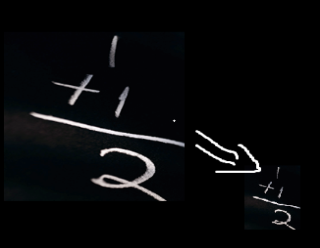 1
+1
2
1
+1
2